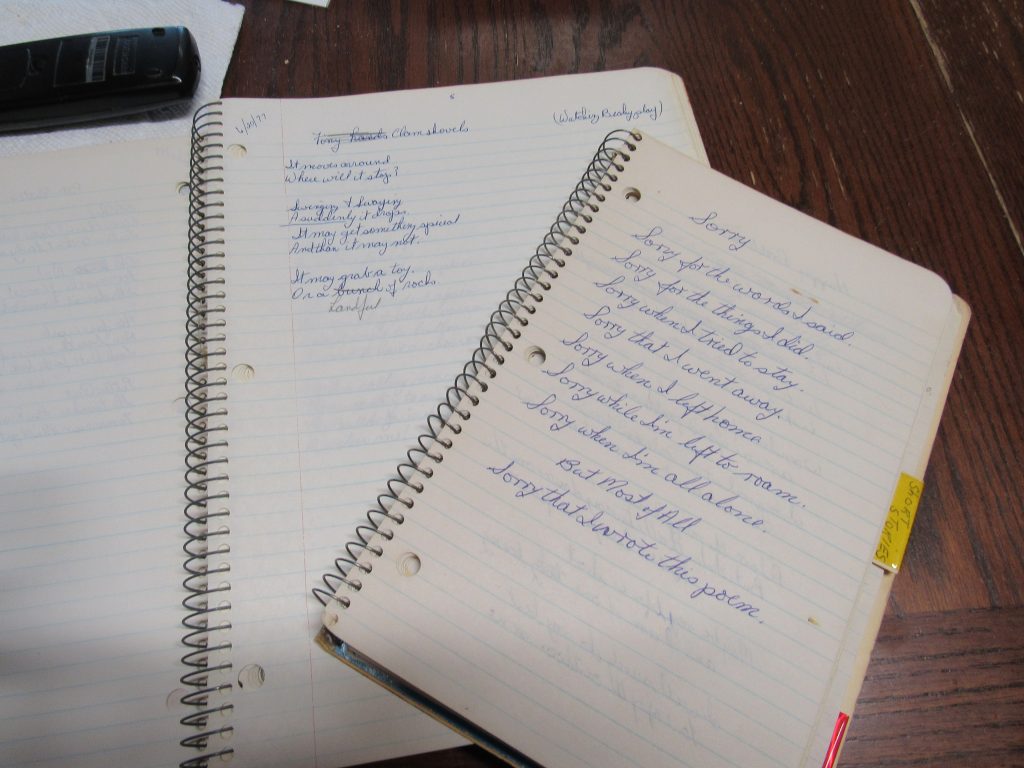 6/21/77
(Watching Bushy play)
Tony hands Clam shovels
It moves around
Where will it stop?
Swingin & Swayin
A suddenly it drops.
It may get something special
And than it may not.
It may grab a toy.
Or a bunch of rocks.
handful
Sorry
Sorry for the words I said.
Sorry for the things I did.
Sorry when I tried to stay.
Sorry that I went away.
Sorry when I left home
Sorry while I'm left to roam.
Sorry when I'm all alone.
But Most of All
Sorry that I wrote this poem.
SHORT
STORIES